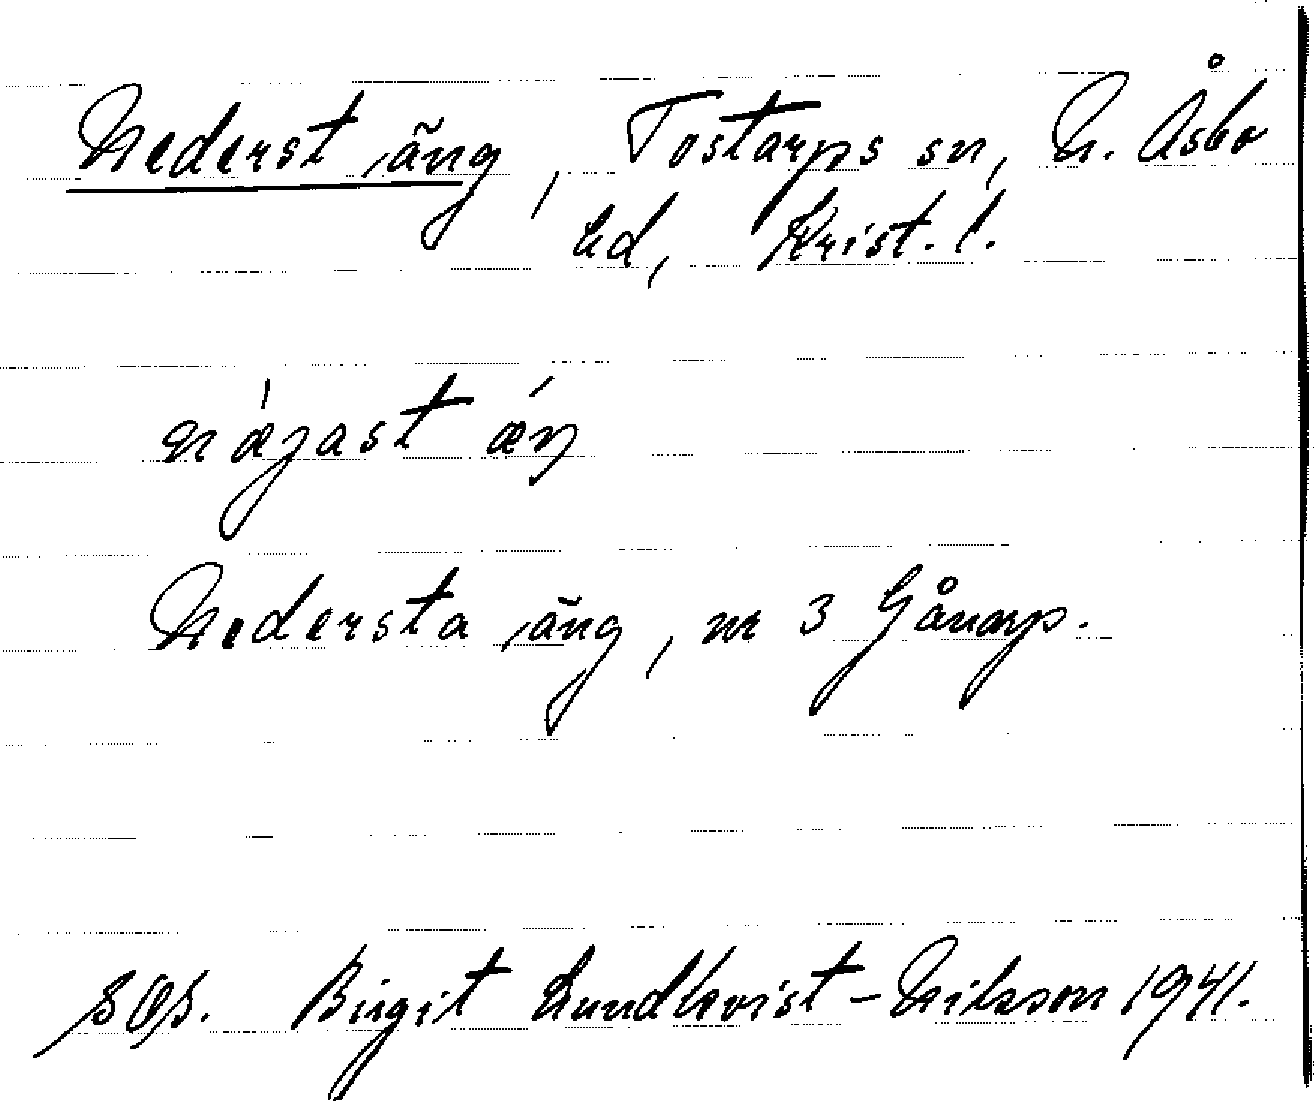 Nederst äng, Tostarps sn, N. Åsbo
hd, Krist. l.
næ̀jast ǽŋ
Nedersta äng, nr 3 Gånarp.
Birgit Lundkvist-Nilsson 1941.